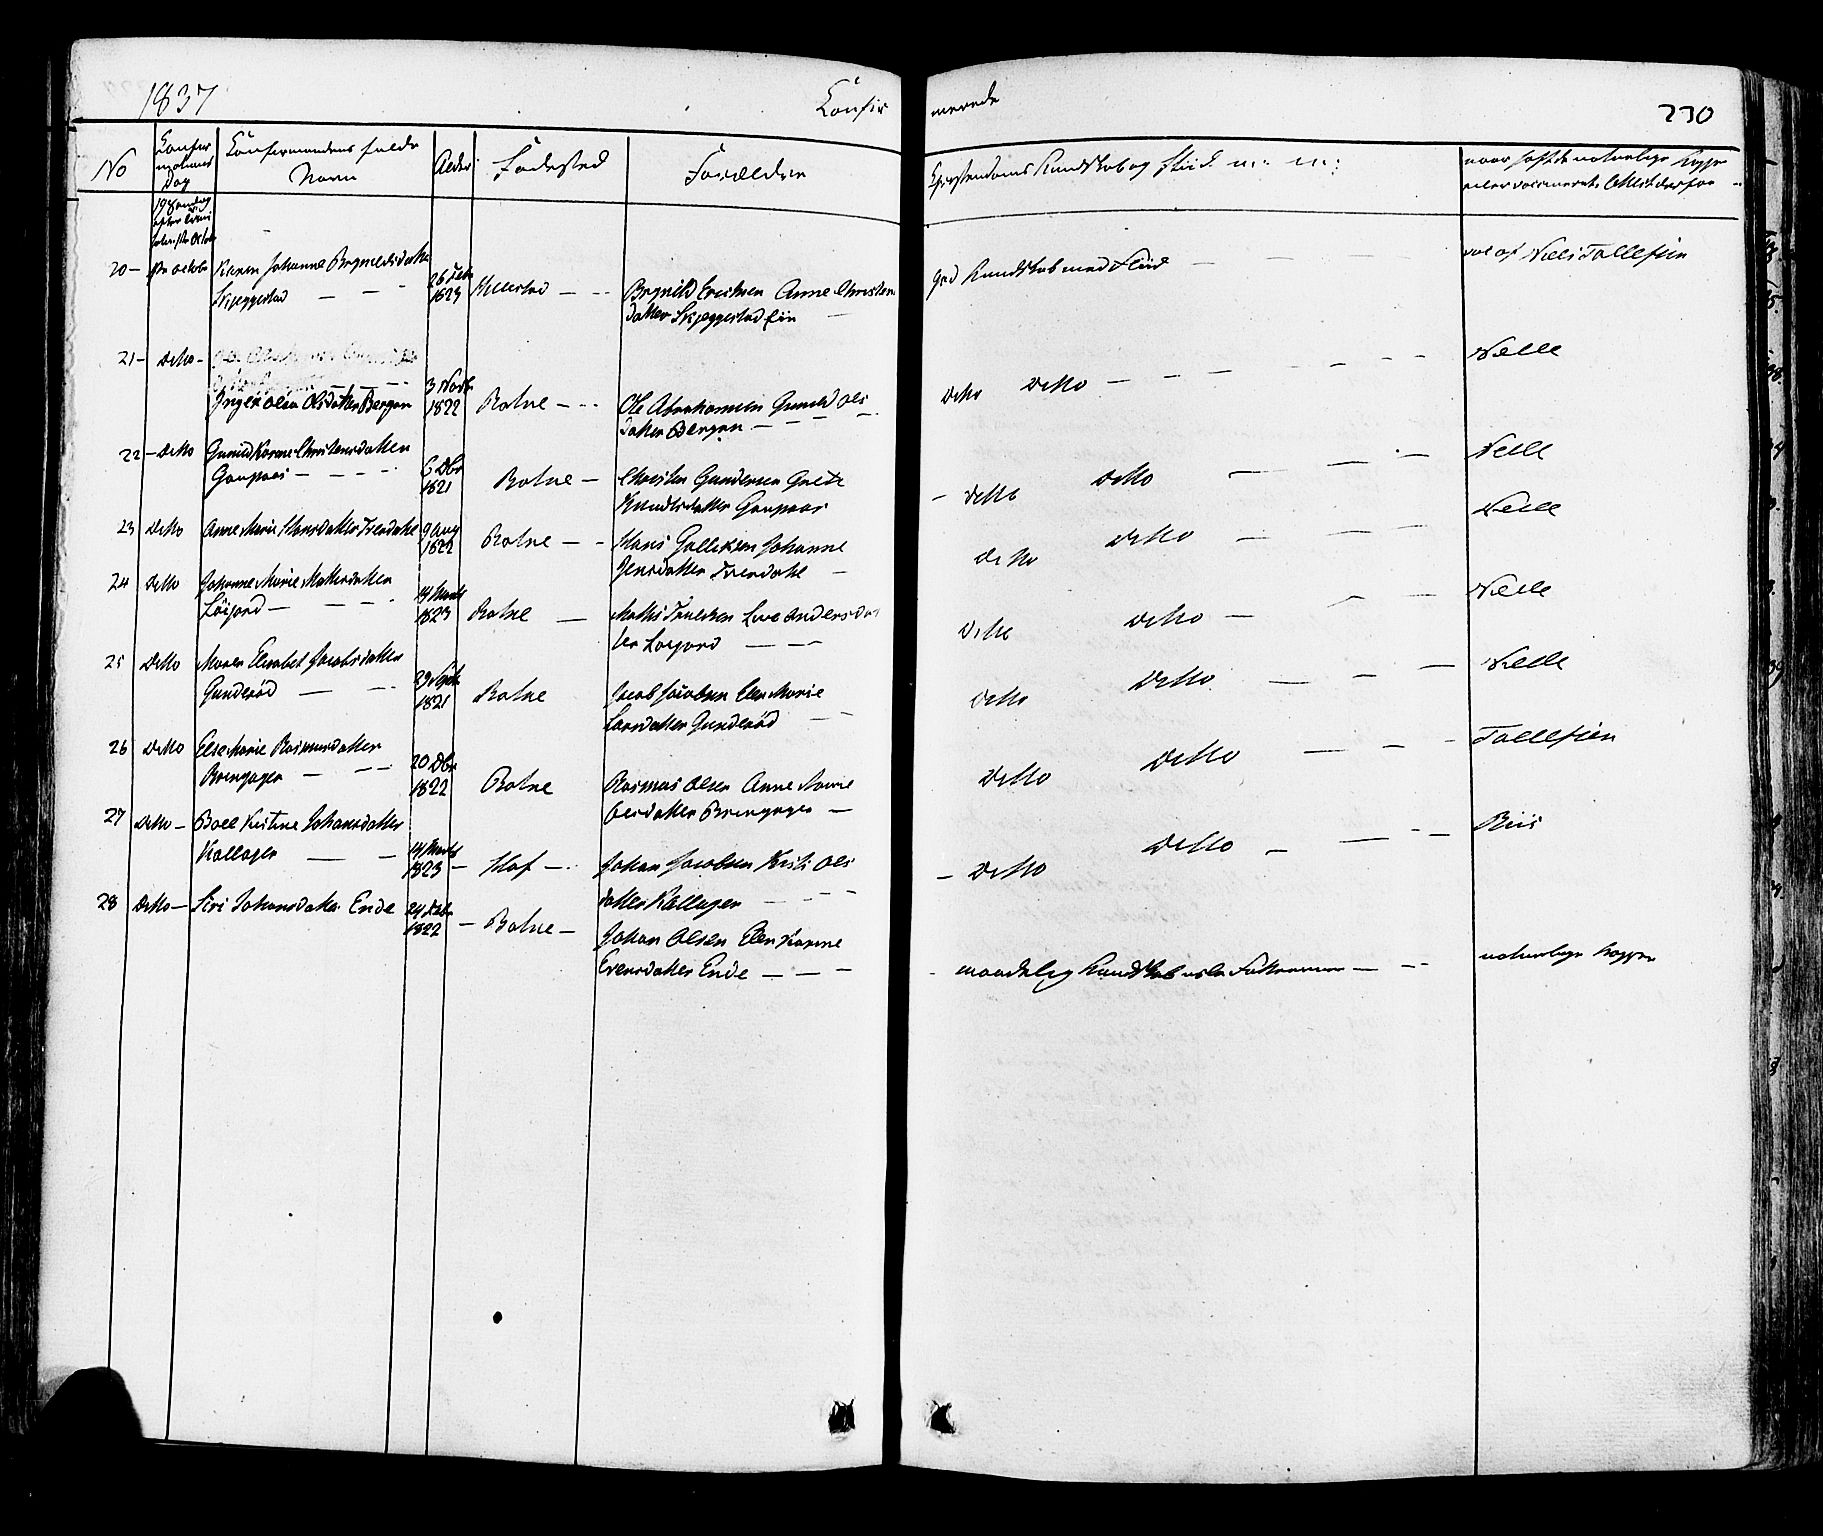 1837
Confir
merede
230
No
Confir
mations
Dag
Confirmandens fulde
Navn
Alder
Fødested
Forældre
Christendoms Kundskab og Flid m: m:
naar havt de naturlige Kopper
eller vaccineret, Attest derfor
19 Søndag
efter Trini
20 — 1ste Octobr Karen Johanne Brynildsdatter
Skjeggestad — — —
26 Febr
1823
Hillestad — —
Brynild Ericksen Anne Christens
datter Skjeggestad Eie
God Kundskab med Flid — — —
vac af Niels Tollefsen
21 — Detto —
Inger Olea Olsdatter Bergan
3 Novbr
1822
Botne — —
Ole Abrahamsen Gunild Ols
datter Bergan — — —
Detto Detto — — — — — —
Nelle
22 — Detto Gunild Karine Christensdatter
Gaupaas — — — —
6 Dbr
1821
Botne —
Christen Gundersen Grete
Knudsdatter Gaupaas
— Detto Detto — — —
Nelle
23 Detto Anne Marie Hansdatter Tverdahl
9 Aug
1822
Botne — —
Hans Gulliksen Johanne
Jensdatter Tverdahl —
Detto Detto — — —
Nelle
24 Detto Johanne Marie Mathisdatter
Løigord — — — —
14 Marts
1823
Botne —
Mathis Truelsen Live Andersdat
ter Løigord — — —
Detto Detto — — — —
Nelle
25 Detto Maren Elisabet Jacobsdatter
Gunderød — — —
29 Septb
1821
Botne
Jacob Jacobsen Elen Marie
Larsdatter Gunderød — —
Detto Detto — — —
Nelle
26 Detto Else Marie Rasmusdatter
Brengager — — —
20 Dbr
1822
Botne
Rasmus Olsen Anne Marie
Olsdatter Brengager —
Detto Detto — — —
Tollefsen
27 Detto — Boel Kistine Johansdatter
Kallager — —
14 Marts
1823
— Hof — .
Johan Jacobsen Kisti Ols
datter Kallager — — —
— Detto Detto — — — —
Riis
28 Detto — Siri Johansdatter Ende
24 Febr
1822
— Botne —
Johan Olsen Elen Karine
Evensdatter Ende — — —
maadelig Kundskab — — —
naturlige Kopper